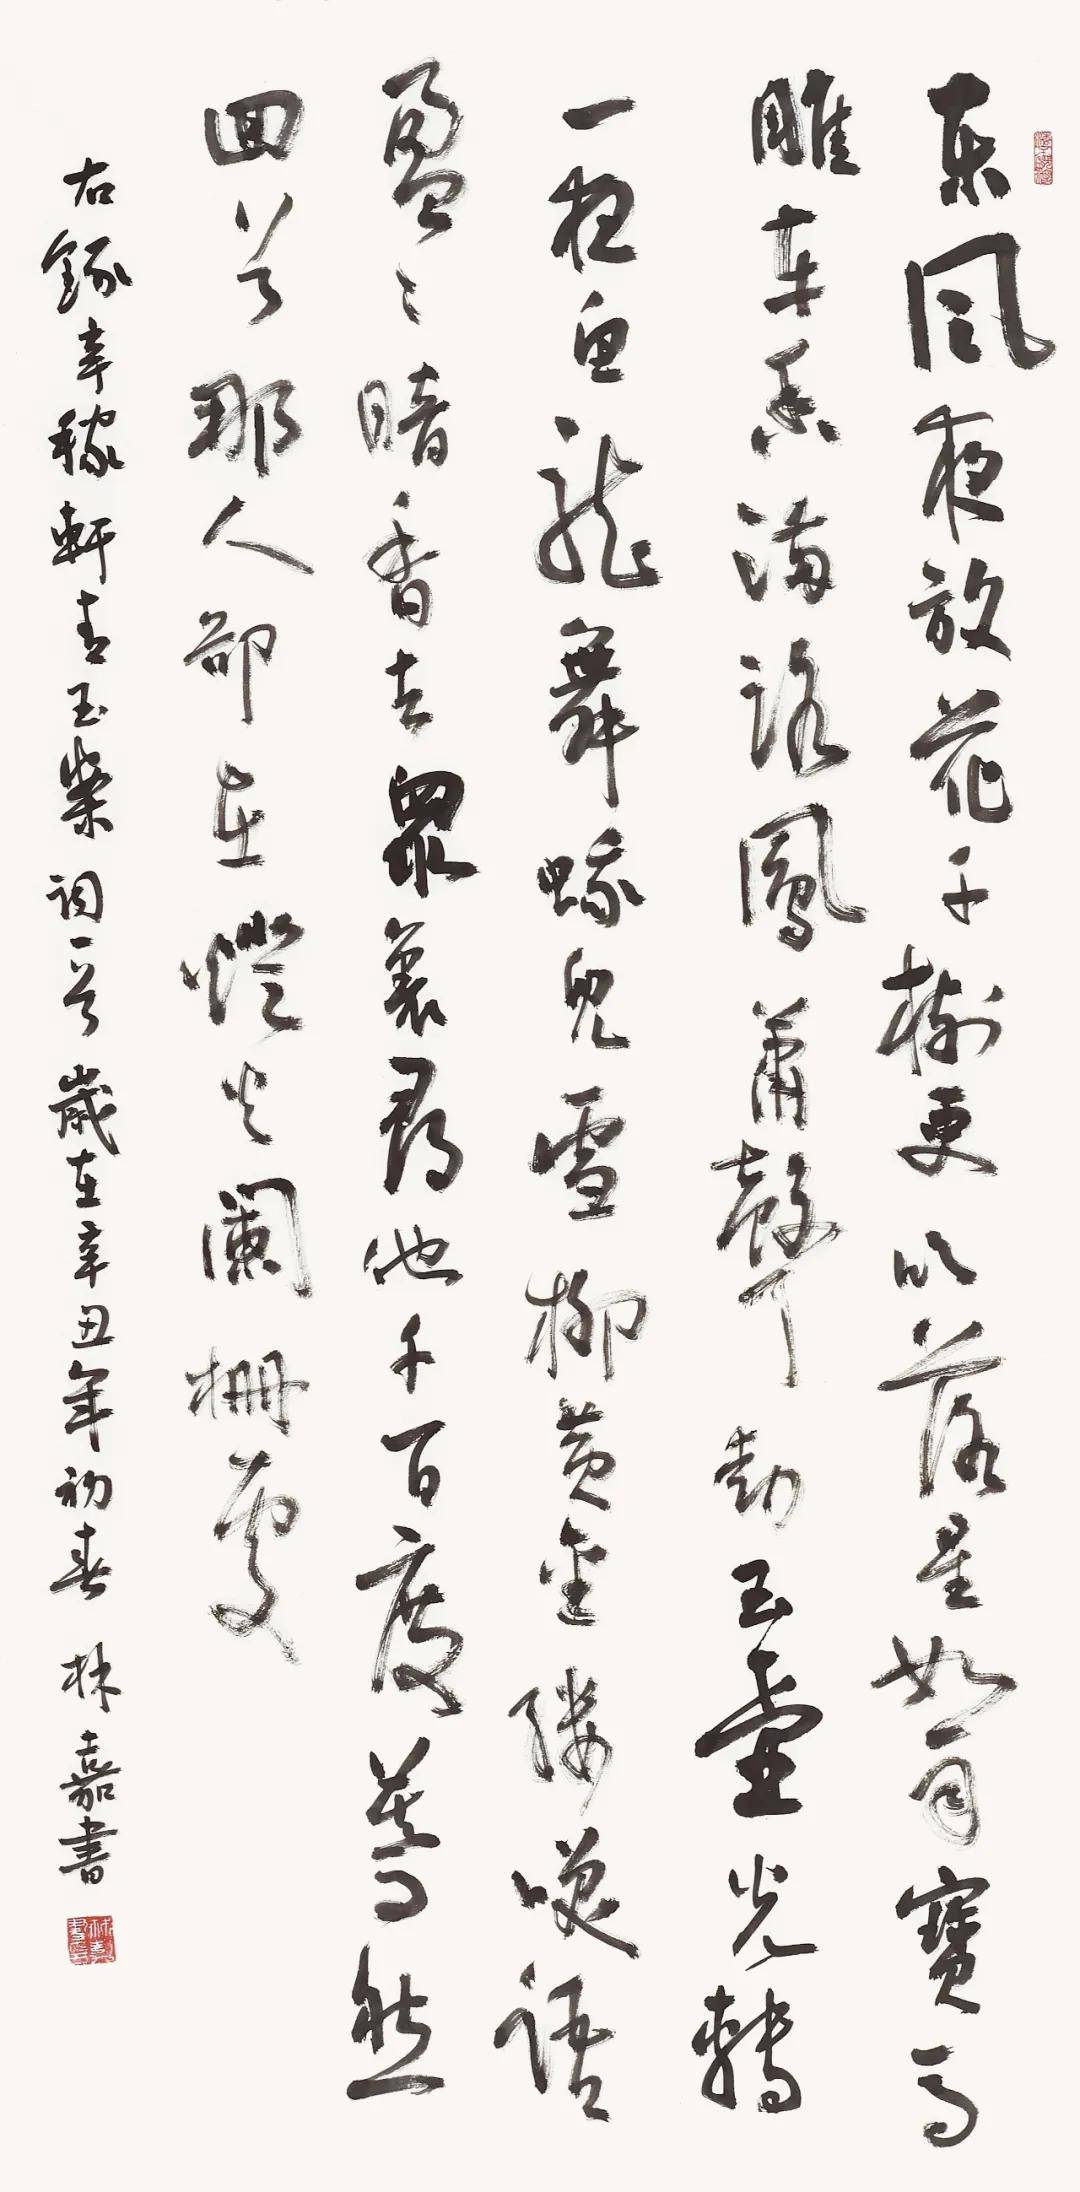 東風夜放花千樹更吹落星如雨寶馬
雕車香滿路鳳簫聲動玉壺光轉
一夜魚龍舞蛾兒雪柳黃金縷咲語
盈〻暗香去眾裏尋他千百度驀然
回首那人卻在燈火闌栅處
右錄辛稼軒青玉案詞一首歲在辛丑年初春 林嘉書